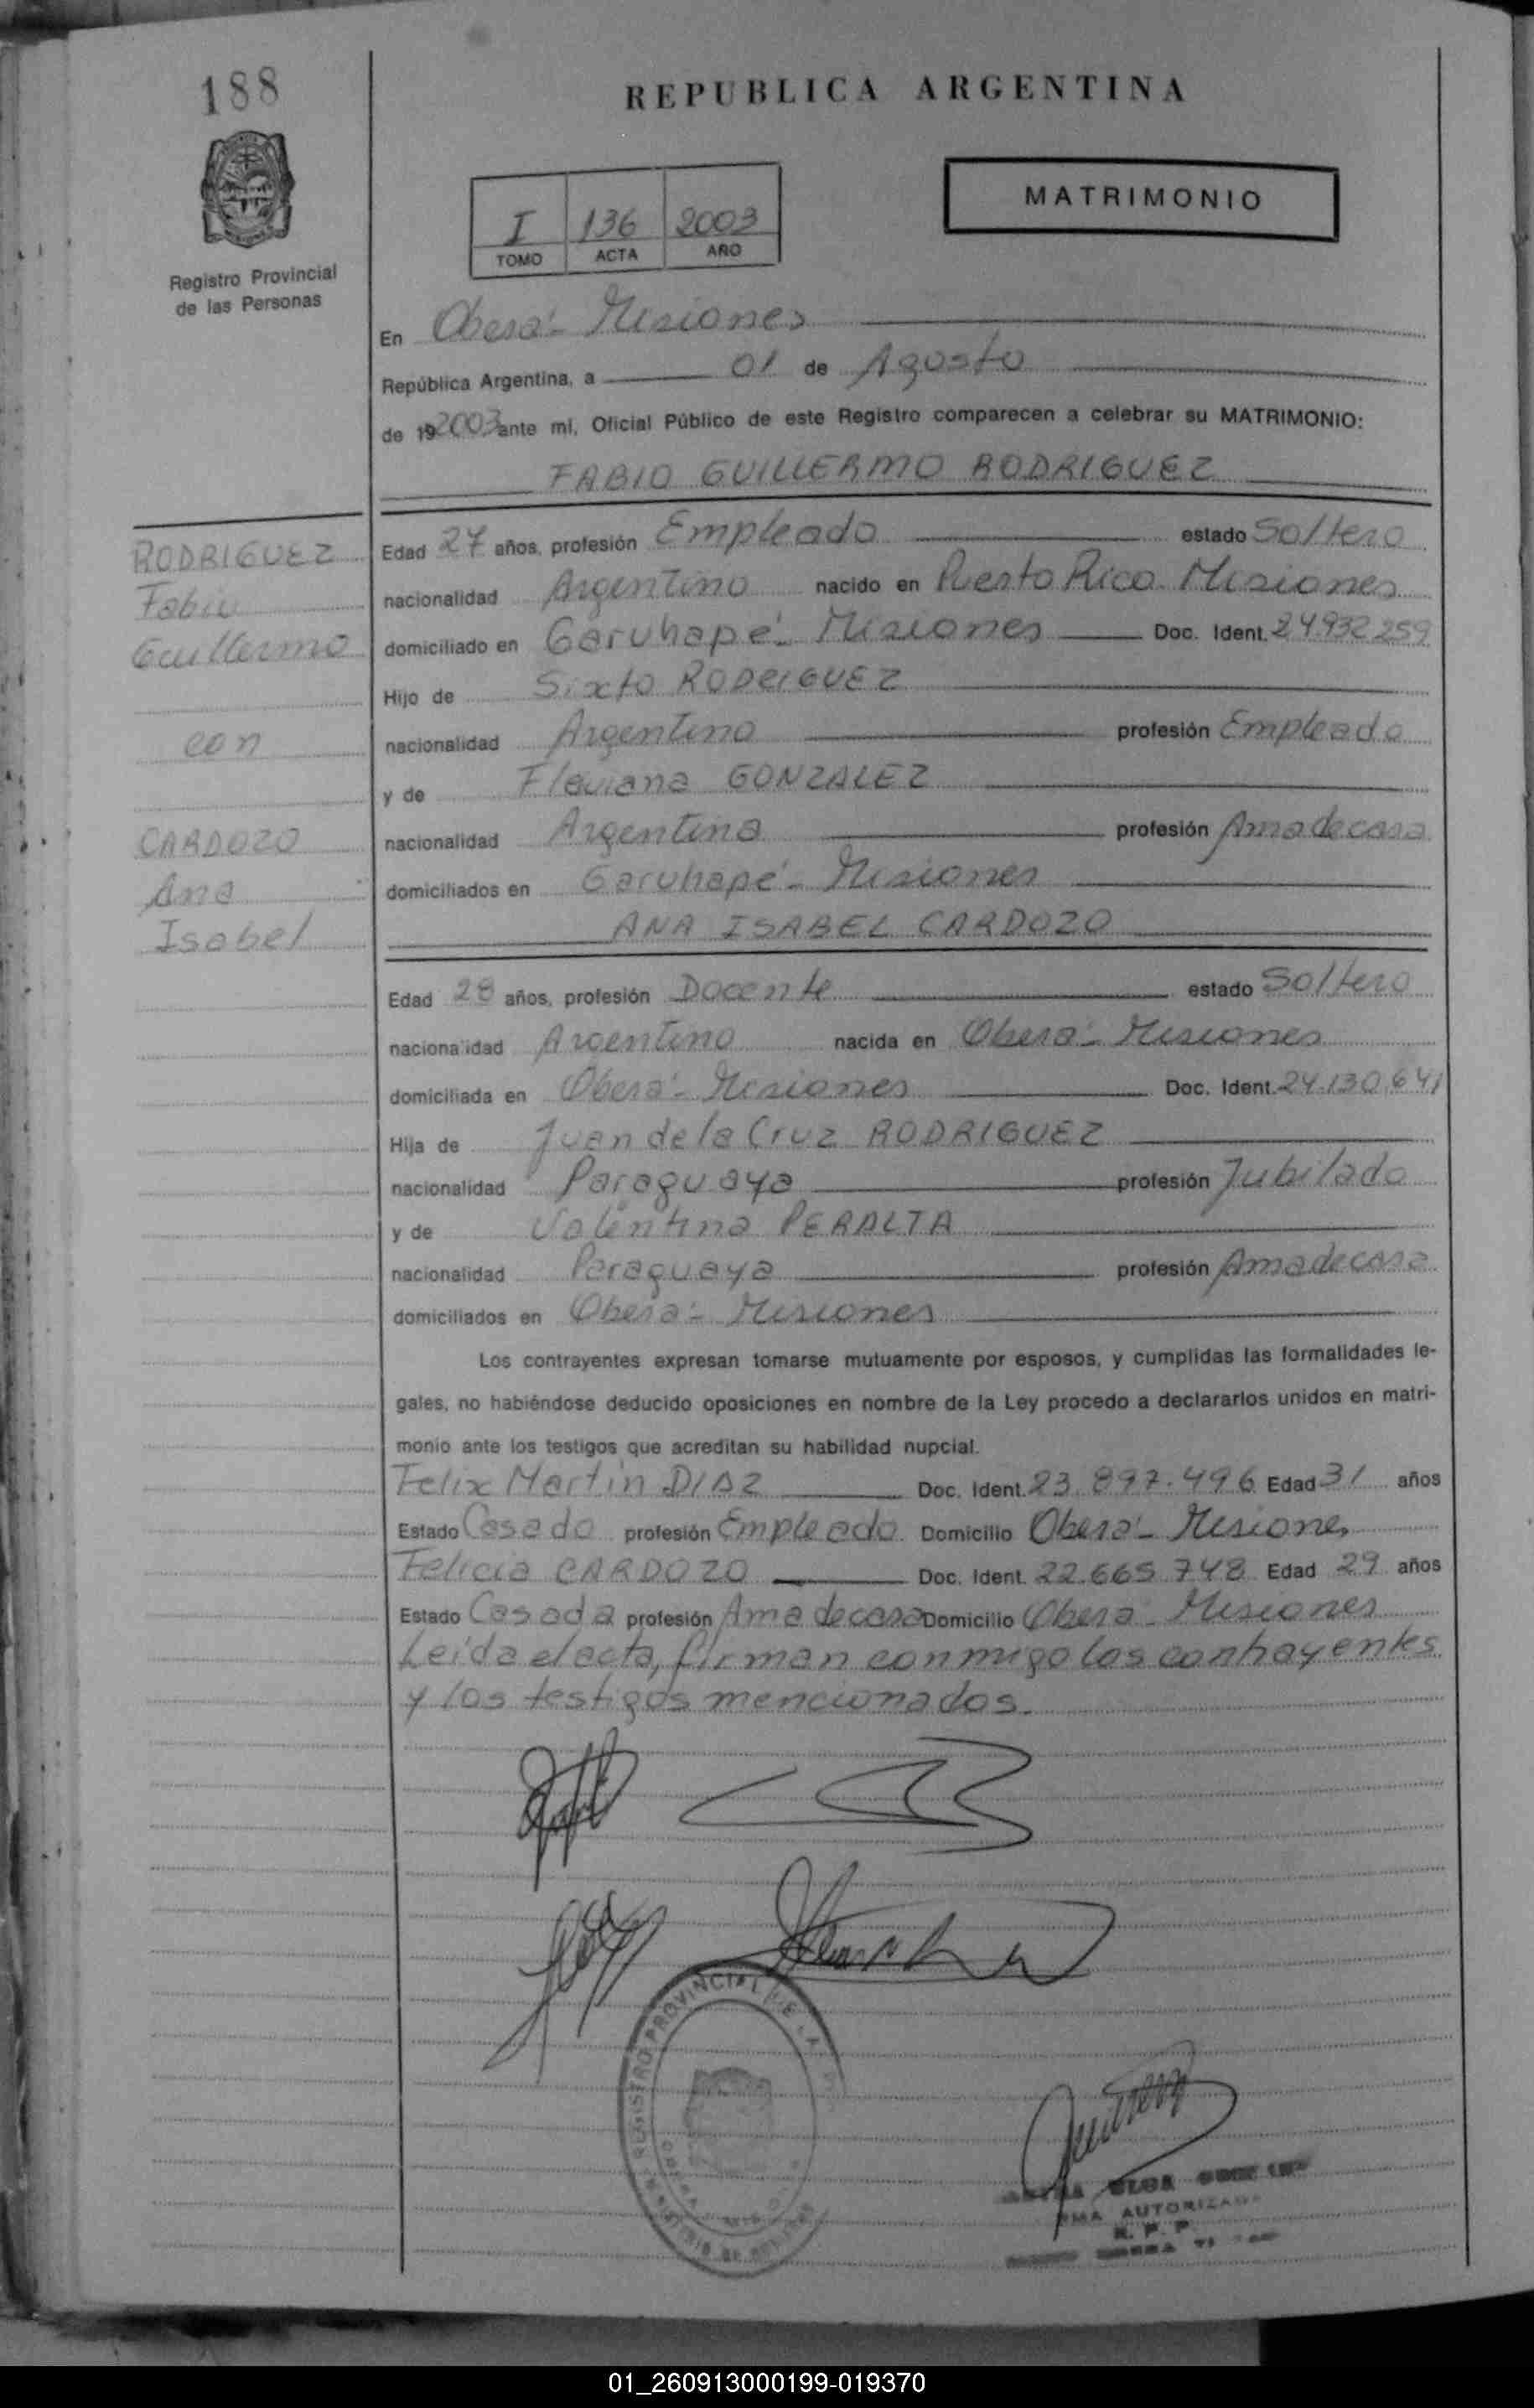 188
REPUBLICA ARGENTINA
MATRIMONIO
I 136 2003
TOMO ACTA AÑO
Registro Provincial
de las Personas
En Oberá - Misiones
República Argentina, a 01 de Agosto
de 192003 ante mí, Oficial Público de este Registro comparecen a celebrar su MATRIMONIO:
FABIO GUILLERMO RODRIGUEZ
RODRIGUEZ
Fabio
Guillermo
con
CARDOZO
Ana
Isabel
Edad 27 años, profesión Empleado estado Soltero
nacionalidad Argentino nacido en Puerto Rico - Misiones
domiciliado en Garuhapé - Misiones Doc. Ident. 24.932.259
Hijo de Sixto RODRIGUEZ
nacionalidad Argentino profesión Empleado
y de Flaviana GONZALEZ
nacionalidad Argentina profesión Ama de casa
domiciliados en Garuhapé - Misiones
ANA ISABEL CARDOZO
Edad 28 años, profesión Docente estado Soltero
nacionalidad Argentino nacida en Oberá - Misiones
domiciliada en Oberá - Misiones Doc. Ident. 24.130.641
Hija de Juan de la Cruz RODRIGUEZ
nacionalidad Paraguaya profesión Jubilado
y de Valentina PERALTA
nacionalidad Paraguaya profesión Ama de casa
domiciliados en Oberá - Misiones
Los contrayentes expresan tomarse mutuamente por esposos, y cumplidas las formalidades le-
gales, no habiéndose deducido oposiciones en nombre de la Ley procedo a declararlos unidos en matri-
monio ante los testigos que acreditan su habilidad nupcial.
Felix Martin DIAZ Doc. Ident. 23.897.496 Edad 31 años
Estado Casado profesión Empleado Domicilio Oberá - Misiones
Felicia CARDOZO Doc. Ident. 22.665.748 Edad 29 años
Estado Casada profesión Ama de casa Domicilio Oberá - Misiones
Leída el acta, firman conmigo los contrayentes
y los testigos mencionados.
REGISTRO PROVINCIAL DE LA
OLGA
AUTORIZADA
R. P. P.
01_260913000199-019370